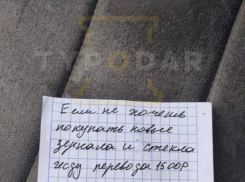 TYPODAR
Если не хочешь
покупать новые
зеркала и стекла
жду перевода 1500Р